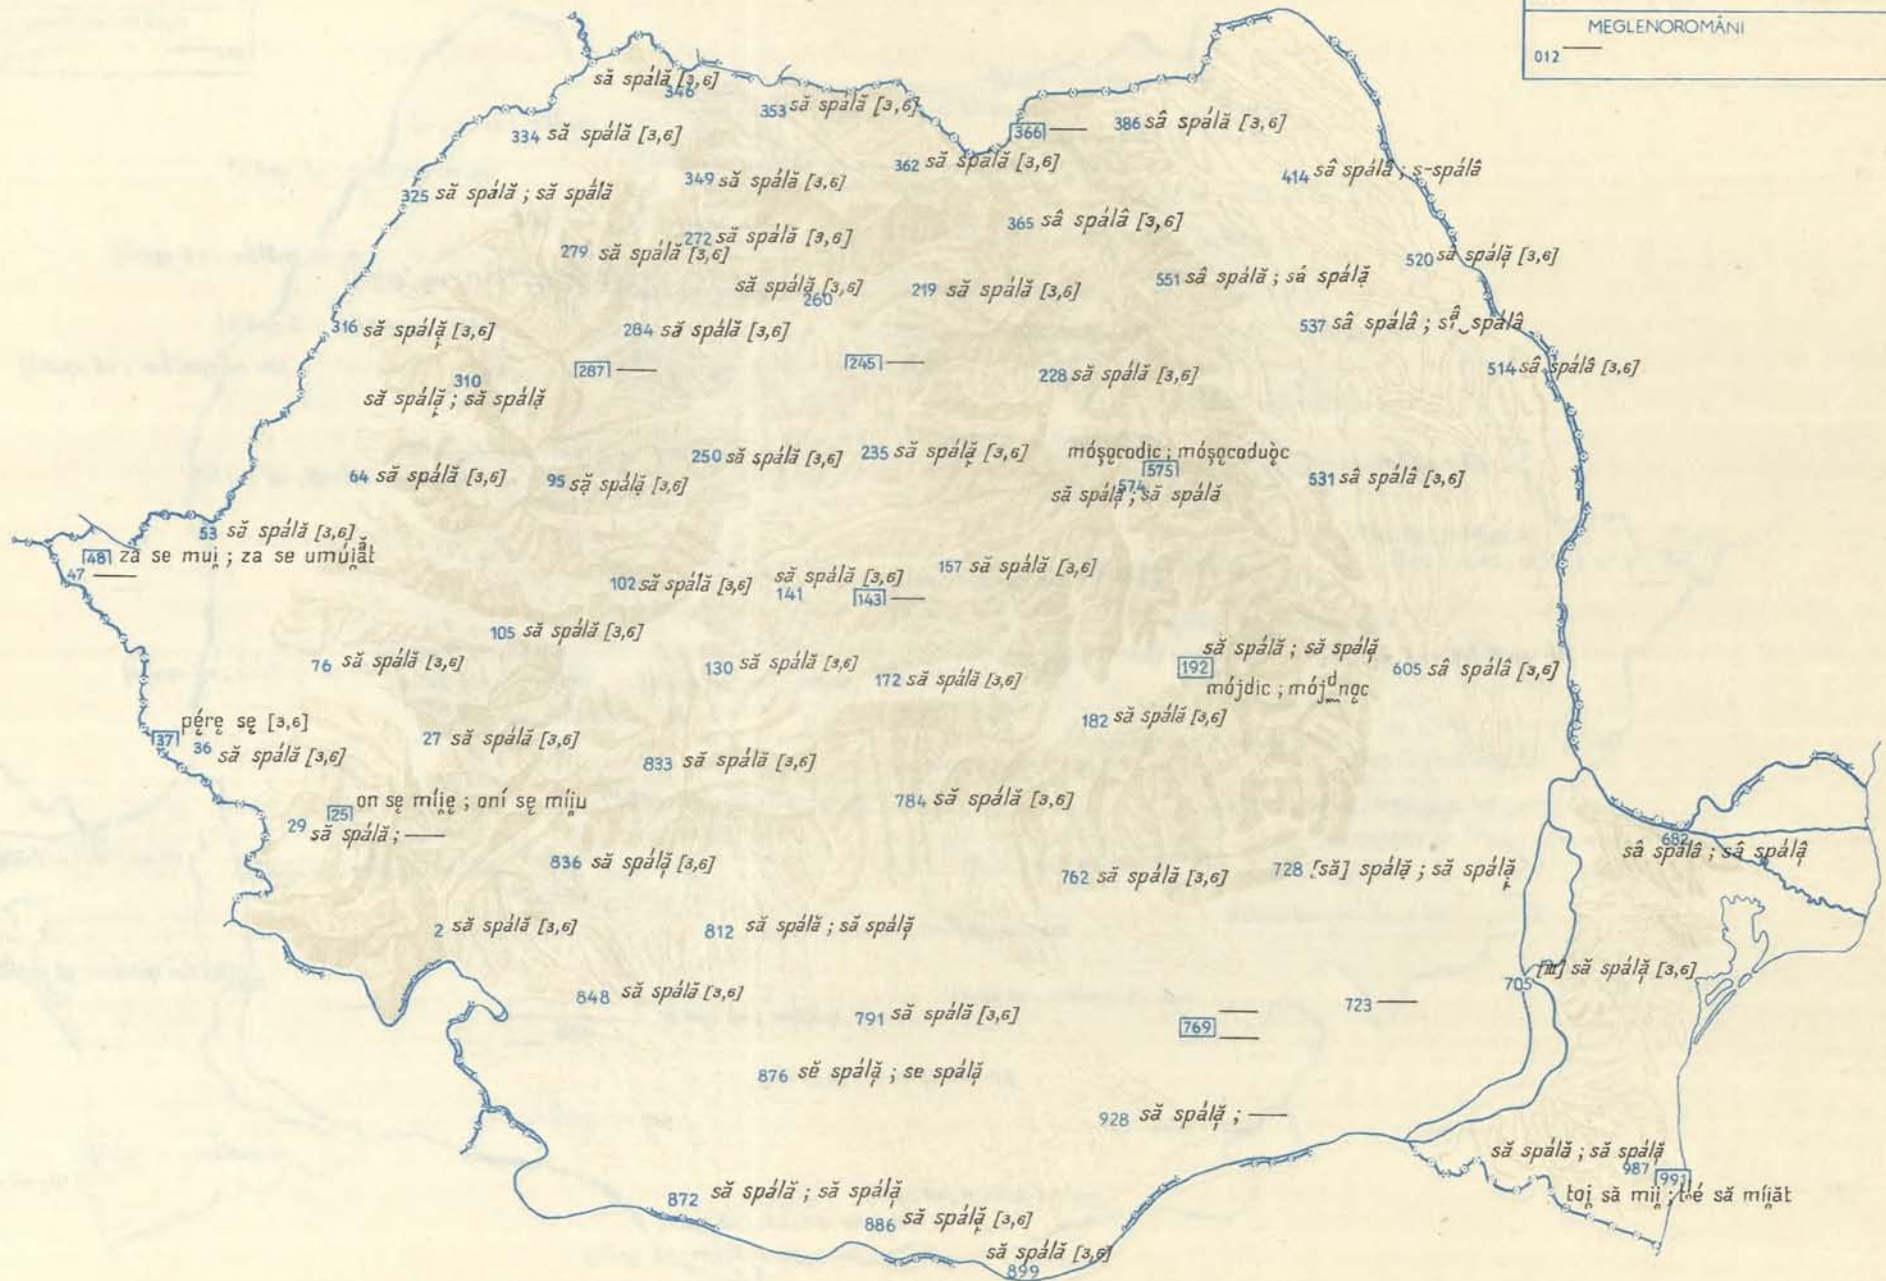 MEGLENOROMÂNI
012 —
să spálă [3,6]
346
353 să spálă [3,6]
334 să spálă [3,6]
366 —
386 sâ spálă [3,6]
362 să spálă [3,6]
349 să spálă [3,6]
414 sâ spálâ ; s-spálâ
325 să spálă ; să spálă
365 sâ spálâ [3,6]
272 să spálă [3,6]
279 să spálă [3,6]
520 să spálă̦ [3,6]
551 sâ spálă ; să spálă̦
să spálă̦ [3,6]
260
219 să spálă [3,6]
316 să spálă̦ [3,6]
284 să spálă [3,6]
537 sâ spálâ ; sî͏ᵃ̂‿spálâ
287 —
245 —
514 sâ spálâ [3,6]
310
228 să spálă [3,6]
să spálă̦ ; să spálă̦
250 să spálă [3,6]
235 să spálă̦ [3,6]
móșo̦codic ; móșo̦coduò̦c
575
64 să spálă [3,6]
95 să̦ spálă̦ [3,6]
574
să spálă̦ ; să spálă
531 sâ spálâ [3,6]
53 să spálă [3,6]
48 za se mui̯ ; za se umúi̯ᵃ̆t
47 —
102 să spálă [3,6]
să spálă [3,6]
141
143 —
157 să spálă [3,6]
105 să spálă [3,6]
76 să spálă [3,6]
130 să spálă [3,6]
172 să spálă [3,6]
să spálă ; să spálă̦
192
mójdic ; mójᵈno̦c
605 sâ spálâ [3,6]
182 să spálă [3,6]
37 pę́rę sę [3,6]
36 să spálă [3,6]
27 să spálă [3,6]
833 să spálă [3,6]
25 on sę míi̯ę ; oní sę míi̯u
29 să spálă ; —
784 să spálă [3,6]
836 să spálă̦ [3,6]
762 să spálă [3,6]
728 [să] spálă̦ ; să spálă̦
682
sâ spálâ ; sâ spálâ̦
2 să spálă [3,6]
812 să spálă ; să spálă̦
848 să spálă [3,6]
791 să spálă [3,6]
769 —
723 —
705 [III] să spálă̦ [3,6]
876 sĕ spálă̦ ; se spálă̦
928 să spálă̦ ; —
să spálă ; să spálă̦
987
991
toi̯ să míi̯ ; t́é să míi̯ăt
872 să spálă ; să spálă̦
886 să spálă̦ [3,6]
să spálă [3,6]
899